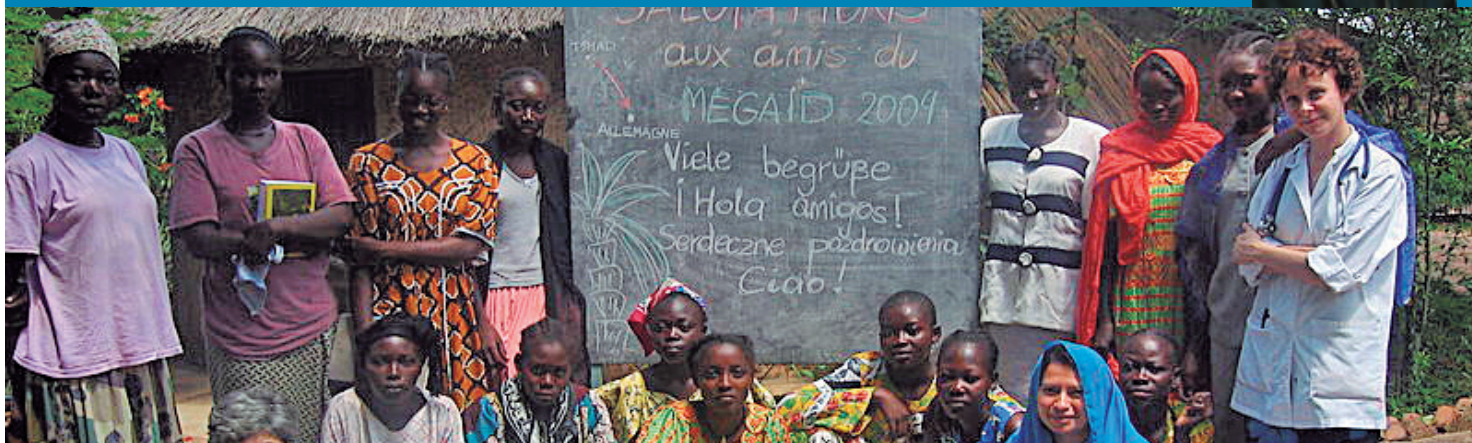 SALUTATIONS
aux amis du
MEGAÏD 2009
TSHAD
ALLEMAGNE
Viele begrüße
¡Hola amigos!
Serdeczne pozdrowienia
Ciao!